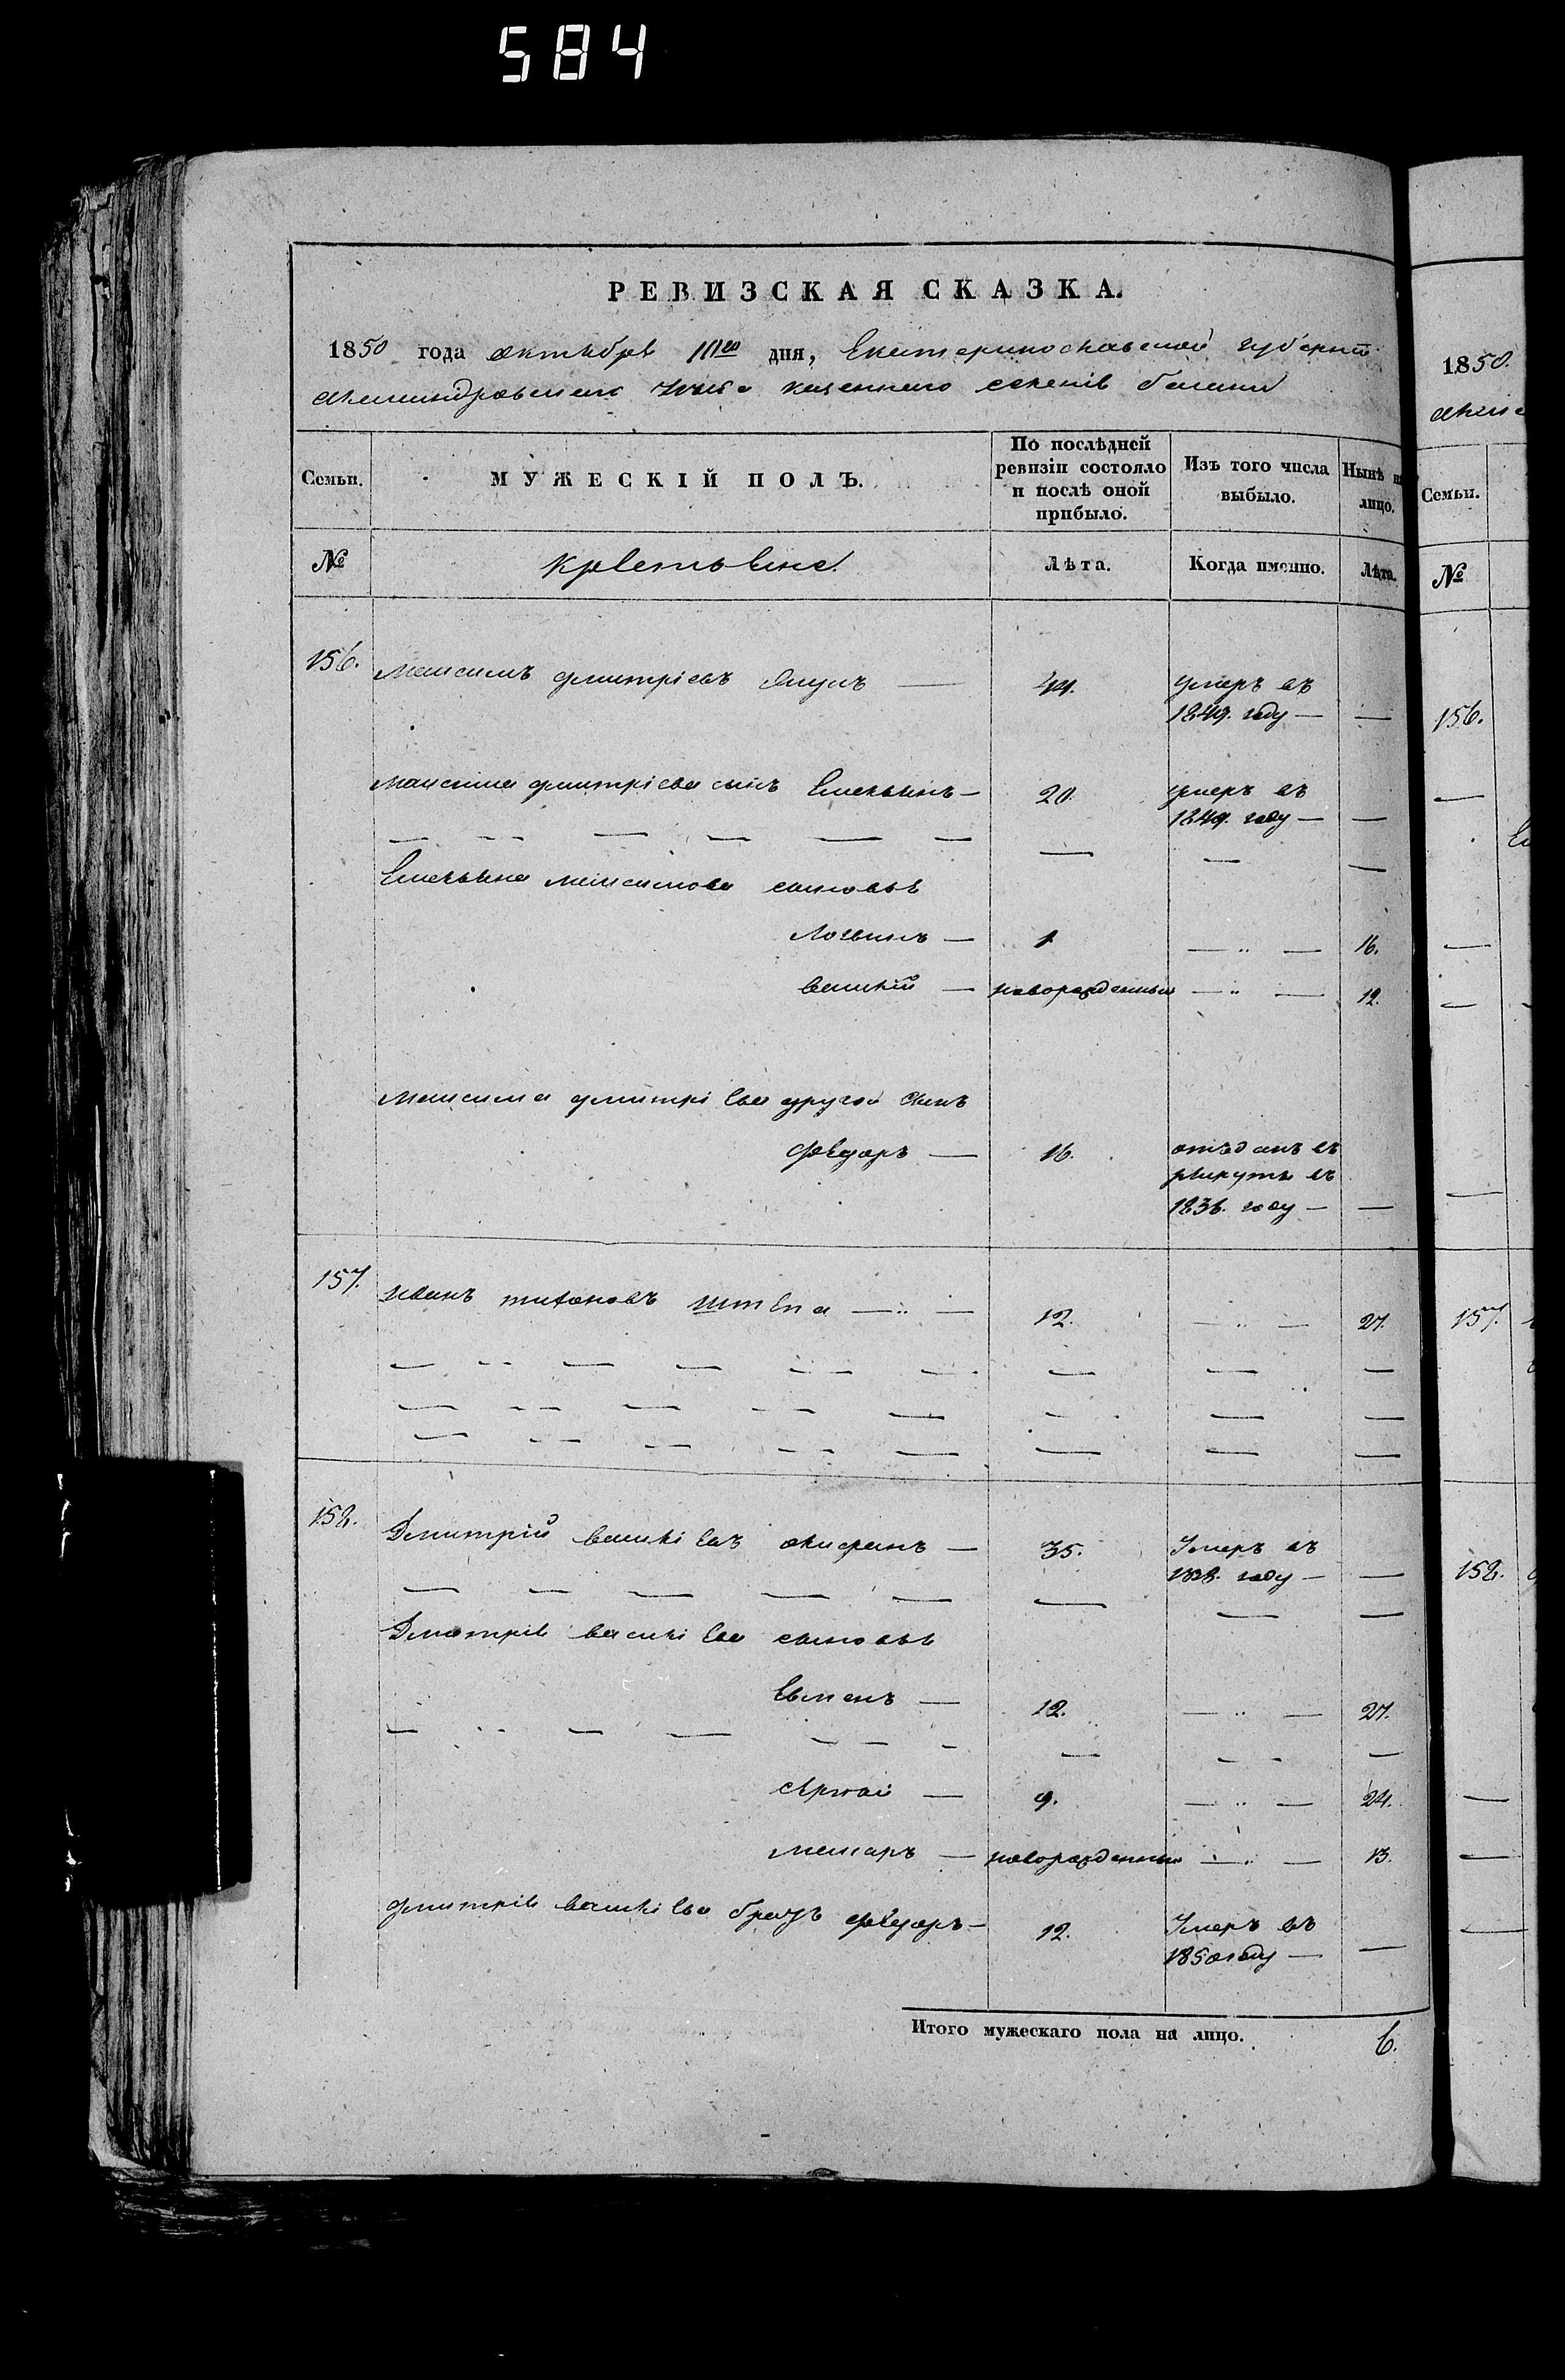 584
РЕВИЗСКАЯ СКАЗКА.
1850 года октября 10го дня, Екатеринославской губернии
Александровского уезда казенного селения
Семьи.
МУЖЕСКІЙ ПОЛЪ.
По послѣдней ревизіи состояло и послѣ оной прибыло.
Изъ того числа выбыло.
Нынѣ на лицо.
№
Крестьяне
Лѣта.
Когда именно.
Лѣта.
156. Максимъ Дмитріевъ — 44. умеръ въ
1849. году — —
Максима Дмитріева сынъ Емельянъ — 20. умеръ въ
1849. году — —
Емельяна Максимова сыновья
Логвинъ — 1 — " — 16.
Василій — новорожденный — " — 12.
Максима Дмитріева другой сынъ
Федоръ — 16. отъданъ въ
рекруты въ
1836. году — —
157. Иванъ Тихоновъ Штепа — " — 12. — " — 27.
158. Дмитрій Василіевъ — 35. Умеръ въ
1838. году — —
Дмитрія Василіева сыновья
Евменъ — 12. — " — 27.
Сергей — 9. — " — 24.
Макаръ — новорожденный — " — 13.
Дмитрія Василіева братъ Федоръ — 12. Умеръ въ
1850 году — —
Итого мужескаго пола на лицо. 6.
1850.
Семьи.
№
156.
157.
158.